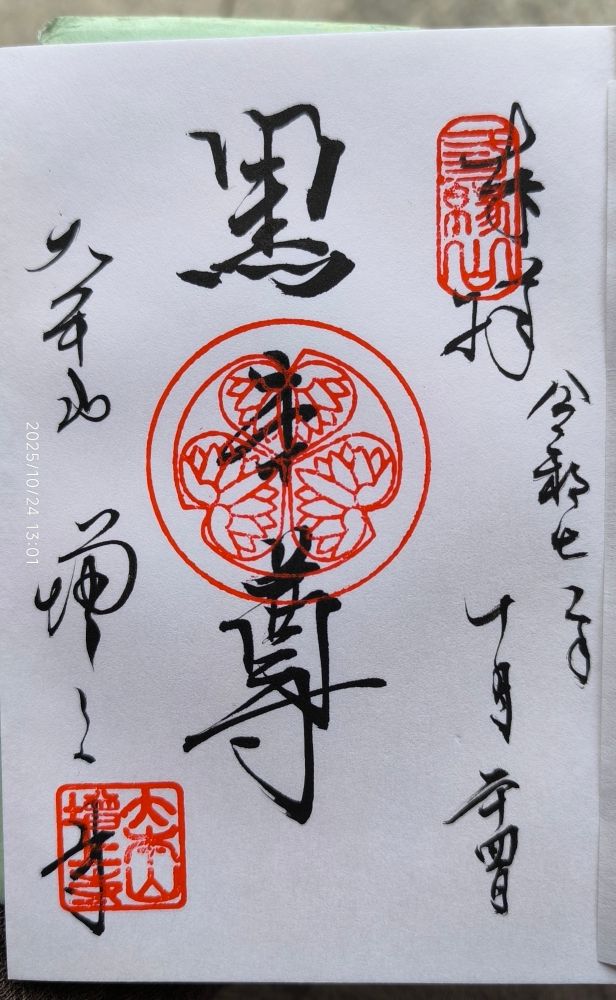 奉拝
三縁山
令和七年
十月二十四日
黒本尊
大本山
増上寺
大本山
増上寺
2025/10/24 13:01